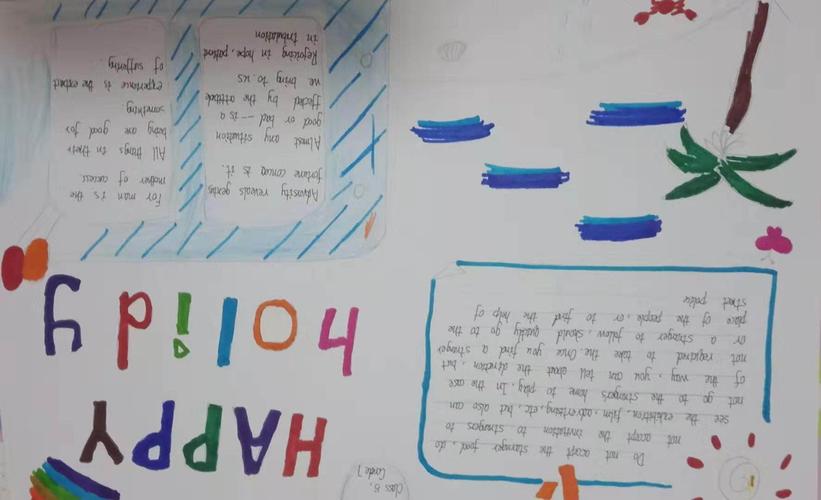 Class 8,
Grade 7
HAPPY
holidy
Do not accept the stranger food, do
not accept the invitation to strangers to
see the exhibition, film, advertising, etc, but also can
not go to the stranger's home to play, In the case
of the way, you can tell about the direction, but
not required to take the. Once you find a stranger
or a stranger to follow, should quickly go to the
place of the people, or to find the help of
street police
Adversity reveals genius
fortune conceas it.
Almost any situation
good or bad — is a
ffected by the attitude
we bring to us.
Rejoicing in hope, patient
in tribulation
For man is the
mother of success.
All things in their
being are good for
something.
experience is the extract
of suffering.